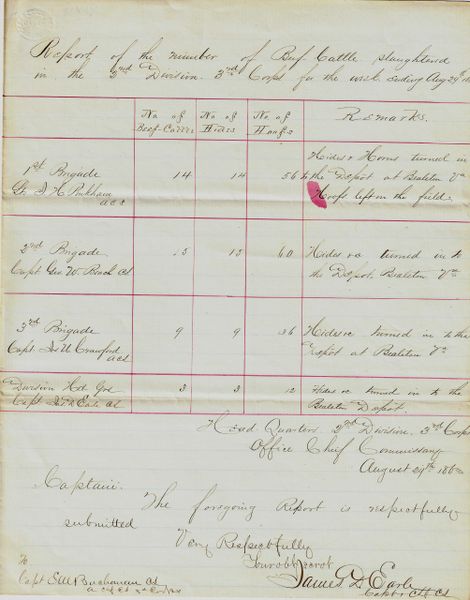 Report of the number of Beef Cattle slaughtered
in the 2nd Division 3rd Corps for the week ending Aug 29th
No of Beef Cattle
No of Hides
No of Hoofs
Remarks.
1st Brigade
Lt. H Pinkham
acs
14
14
56
Hides & Horns turned in
to the Depot at Bealeton Va
Hoofs left on the field.
2nd Brigade
Capt Geo. W. CS
15
15
60
Hides &c turned in to
the Depot Bealeton Va
3rd Brigade
Capt Crawford
acs
9
9
36
Hides &c turned in to the
Depot at Bealeton Va
Division Hd Qrs
Capt Earle CS
3
3
12
Hides &c turned in to the
Bealeton Depot.
Head Quarters 2nd Division 3rd Corps
Office Chief Commissary
August 29th 186
Captain.
The foregoing Report is respectfully
submitted
Very Respectfully
Your obt servt
James D Earle
Capt & CS
To
Capt Buchanan CS